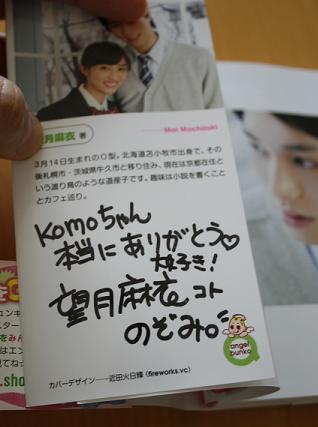 月麻衣 著
Mai Mochizuki
3月14日生まれのO型。北海道苫小牧市出身で、その
後札幌市・茨城県牛久市と移り住み、現在は京都在住と
いう渡り鳥のような道産子です。趣味は小説を書くこと
とカフェ巡り。
Komoちゃん
本当にありがとう♡
大好き!
望月麻衣コト
のぞみ。
angel bunko
カバーデザイン――近田火日輝(fireworks.vc)
.sho